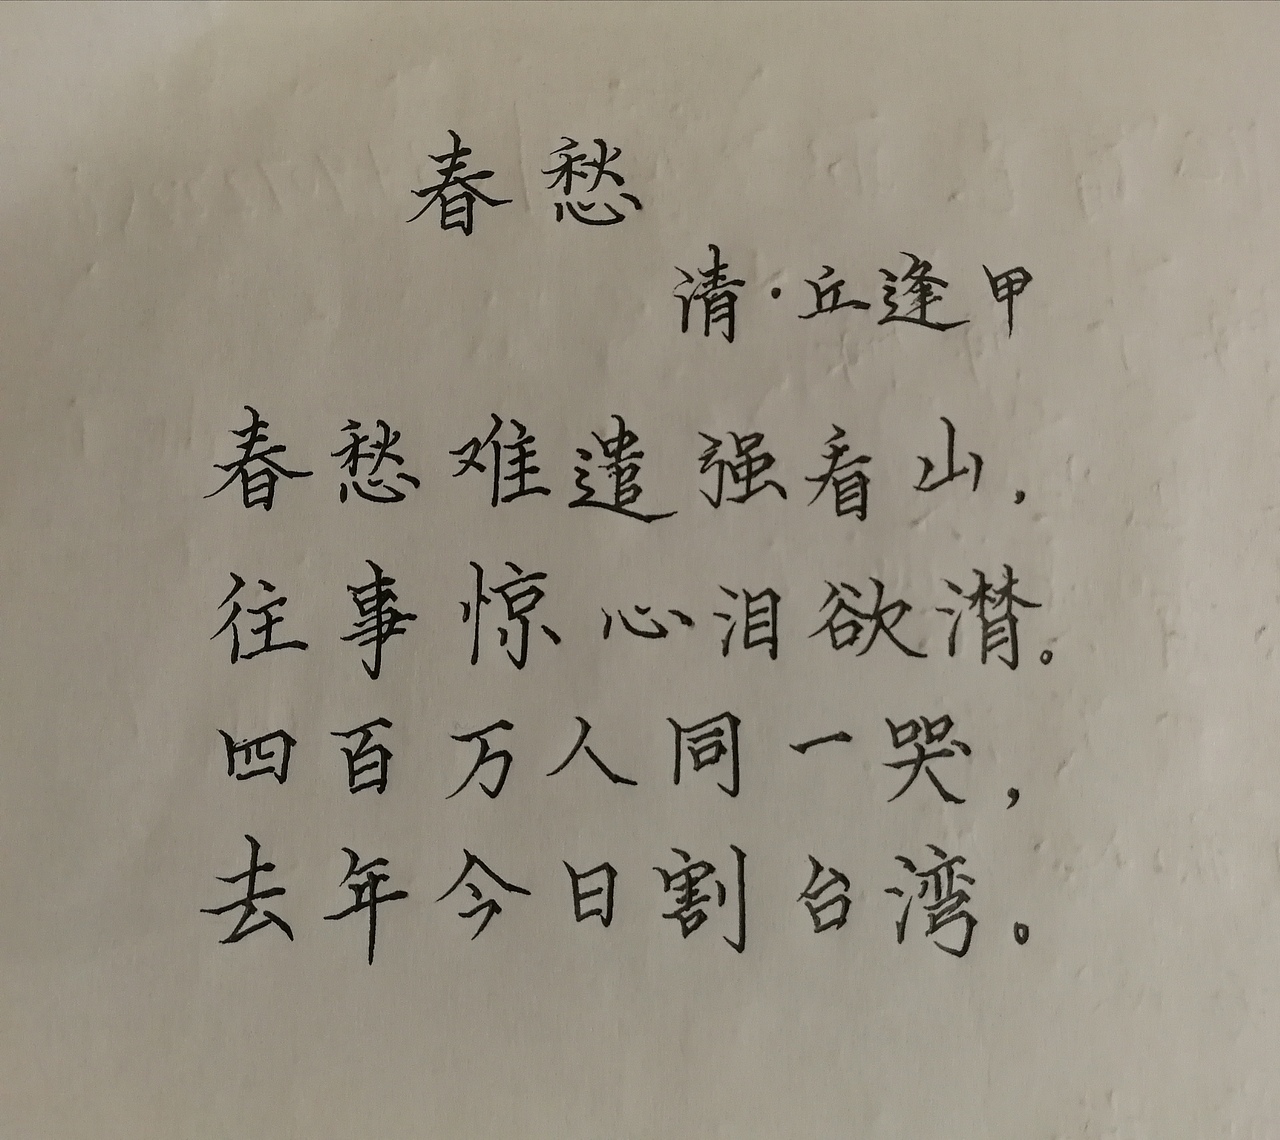 春愁
清·丘逢甲
春愁难遣强看山，
往事惊心泪欲潸。
四百万人同一哭，
去年今日割台湾。